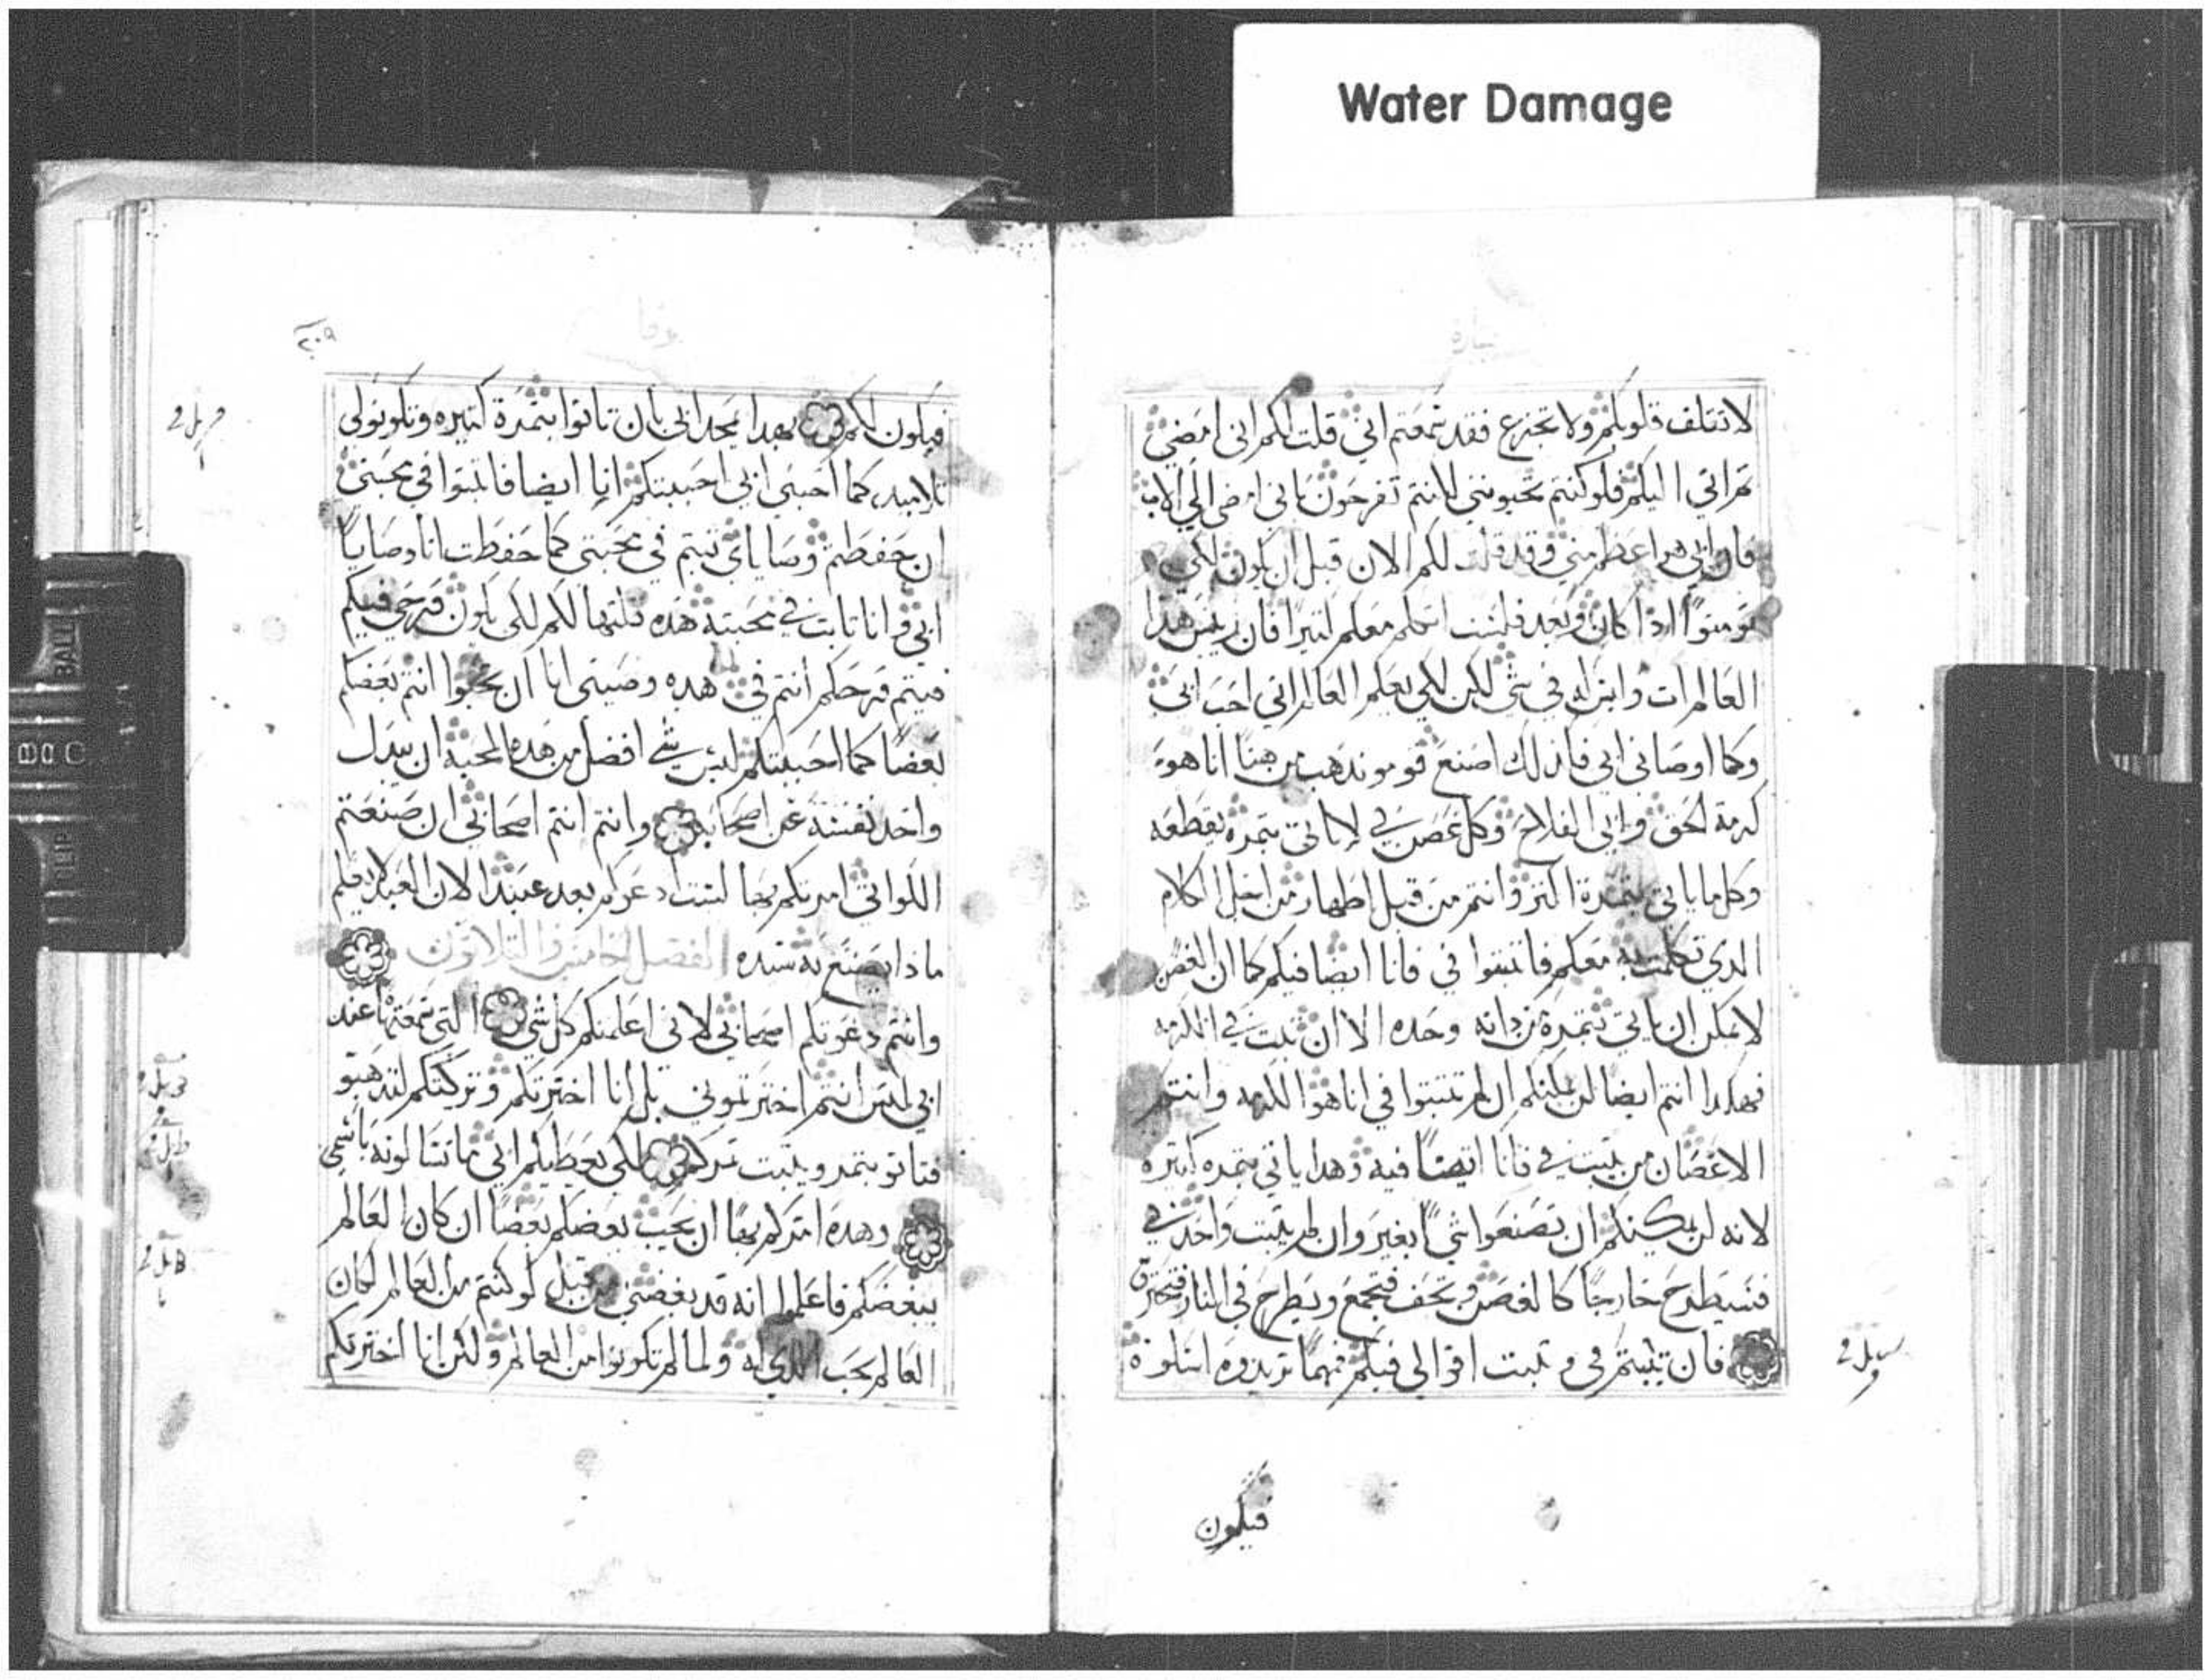 Water Damage
بشارة
لا تقلق قلوبكم ولا تجزع فقد سمعتم اني قلت لكم اني امضي
ثم اتي اليكم فلو كنتم تحبونني لانتم تفرحون باني امضي الي الاب
فان ابي هو اعظم مني وقد قلت لكم الان قبل ان يكون لكي
تومنوا اذا كان وبعد فلست اتكلم معكم كتيرا فان رييس هدا
العالم ات وليس له في شي لكن لكي يعلم العالم اني احب ابي
وكما اوصاني ابي فكذلك اصنع قومو نذهب من هنا انا هو
كرمة الحق وابي الفلاح وكل غصن في لا ياتي بتمرة يقطعه
وكلما ياتي بتمرة اكتر وانتم من قبل اطهار من اجل الكلام
الدي تكلمت به معكم فاتبتوا في فانا ايضا فيكم كما ان الغصن
لا يمكن ان ياتي بتمرة من داته وحده الا ان تبت في الكرمه
فهكدا انتم ايضا لن يمكنكم ان لم تتبتوا في انا هو الكرمه وانتم
الاغصان من يتبت في فانا ايضا فيه وهدا ياتي بتمره كتيره
لانه لن يمكينكم ان تصنعوا شيا بغيري وان لم يتبت واحد في
فسيطرح خارجا كالغصن ويجف فيجمع ويطرح في النار فيحترق
فان تبتم في و تبت اقوالي فيكم فمهما تريدوه اسلوه
فيكون
يوحنا
٢٠٩
فيكون لكم بهدا يمجد ابي بان تاتوا بتمرة كتيره وتكونو لي
تلاميد كما احبني ابي احببتكم انا ايضا فاتبتوا في محبتي
ان حفظتم وصاياي تبتم في محبتي كما حفظت انا وصايا
ابي وانا تابت في محبته هده قلتها لكم لكي يكون فرحي فيكم
فيتم فرحكم انتم في هده وصيتي انا ان تحبوا انتم بعضكم
بعضا كما احببتكم ليس شي افضل من هده المحبه ان يبدل
واحد نفسه عن اصحابه وانتم انتم اصحابي ان صنعتم
اللواتي امرتكم بها لست ادعوكم بعد عبيدا لان العبد لا يعلم
ما دا يصنع به سيده الفصل الخامس والتلاتون
وانتم دعوتكم اصحابي لاني اعلمتكم كل شي التي سمعتها عند
ابي ليس انتم اخترتموني بل انا اخترتكم وتركتكم لتدهبو
فتاتو بتمر ويتبت تمركم لكي يعطيكم ابي ما تسالونه باسمي
وهده امركم بها ان يحب بعضكم بعضا ان كان العالم
يبغضكم فاعلموا انه قد بغضني من قبل لو كنتم من العالم لكان
العالم يحب الدي له ولما لم تكونوا من العالم ولكن انا اخترتكم